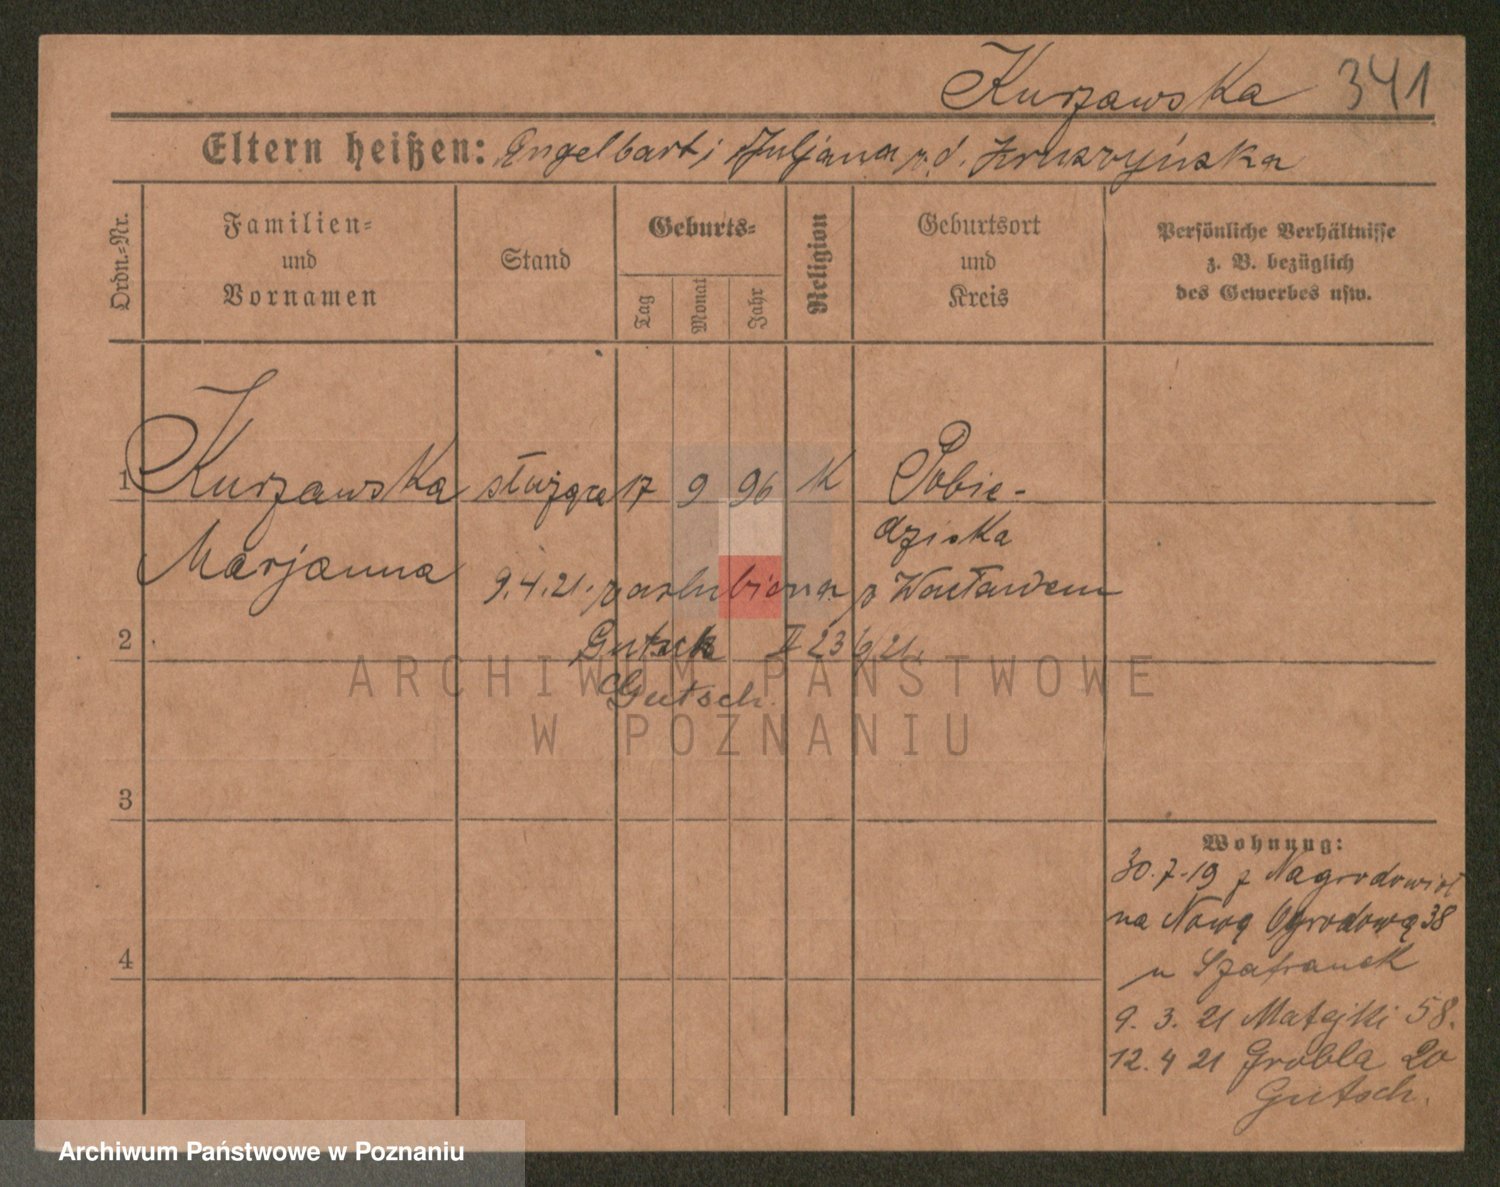 Kurzawska 341
Eltern heißen: Engelbart i Juljana z d. Kruszyńska
Ordn.-Nr.
Familien- und Vornamen
Stand
Geburts-
Tag
Monat
Jahr
Religion
Geburtsort und Kreis
Persönliche Verhältnisse z. B. bezüglich des Gewerbes usw.
1 Kurzawska służąca 17 9 96 K Pobie-
dziska
Marjanna
9.4.21. zaślubiona z Wacławem
2 Gutsch II 23/9/21.
Gutsch.
3
Wohnung:
30.7.19 z Nagrodowic
na Nową Ogrodową 38
4
u Szafranek
9.3.21 Matejki 58.
12.4 21 Grobla 20
Gutsch.
ARCHIWUM PAŃSTWOWE
W POZNANIU
Archiwum Państwowe w Poznaniu